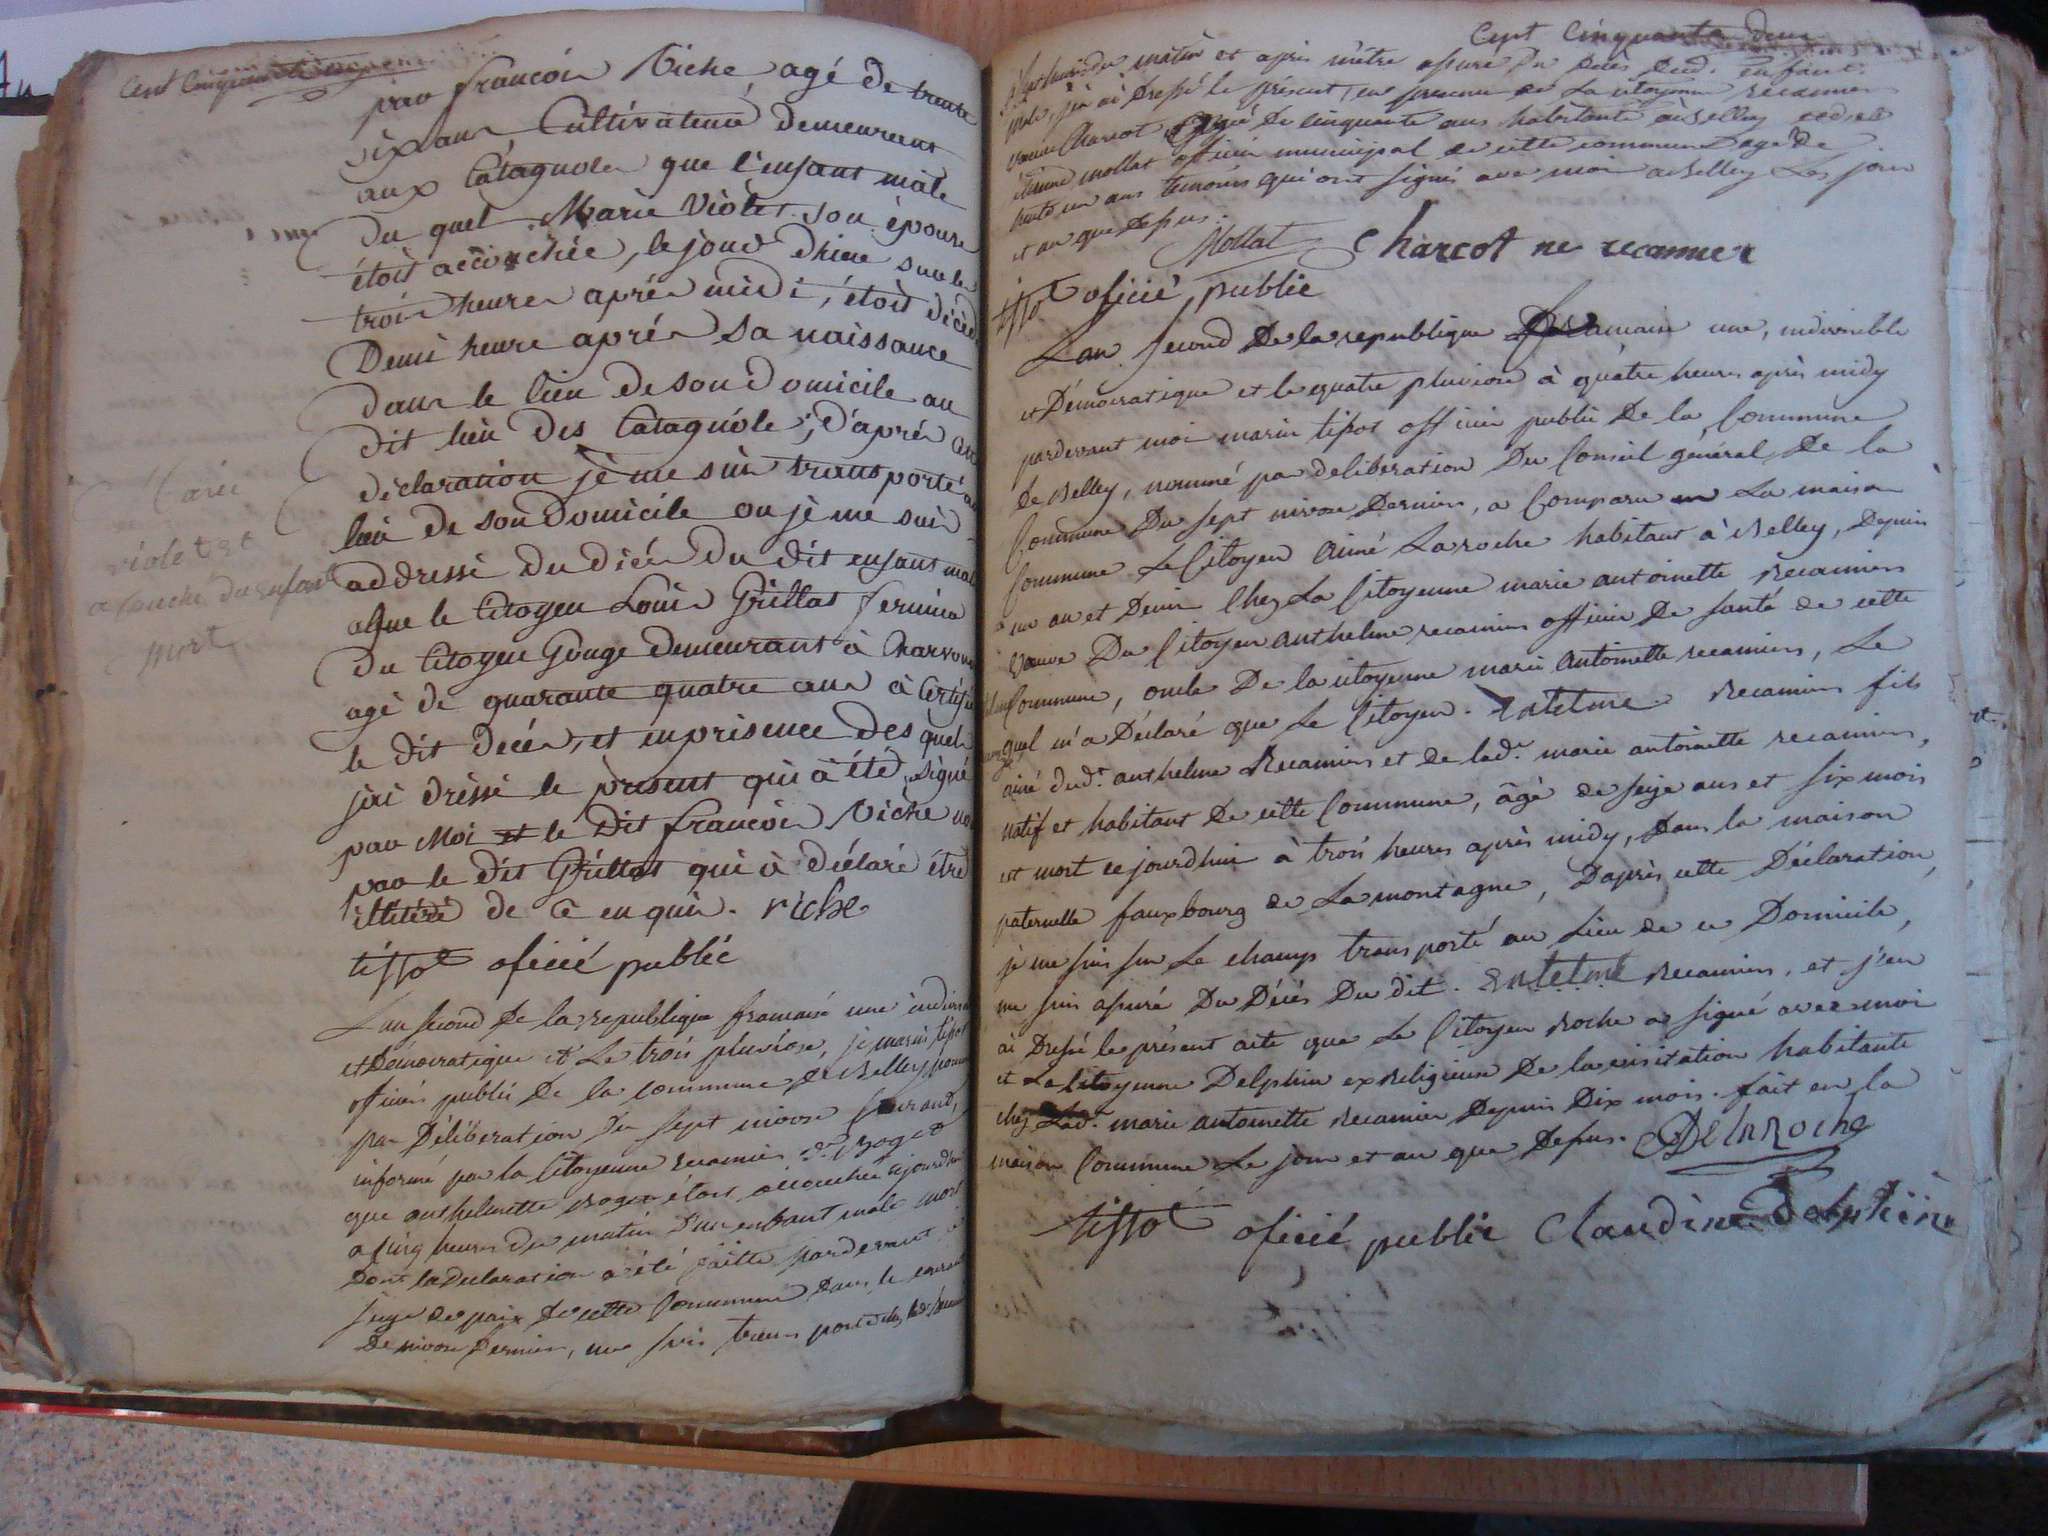 Cent Cinquante
par francois Riche agé de trente
six ans Cultivateur demeurant
aux Catagnoles que l'enfant mâle
du quel Marie Violet son épouse
étoit accouchée, le jour d'hier sur les
trois heures aprés midi, étoit décédé
Demi heure aprés sa naissance
dans le lieu de son domicile au
dit lieu des Catagnole; d'aprés cette
déclaration jè me suis transporté au
lieu de son Domicile ou jè me suis
addressé du dicés du dit enfant mal
que le Citoyen Louis Grillat fermier
du Citoyen Gouge demeurant à Charvon
agé de quarante quatre ans à Certifié
le dit decés, et en prisence des quels
j'ai dréssé le prèsent qui à été signé
par Moi et le dit francois Riche non
par le dit Grillat qui à déclaré étre
illitéré de ce enquis. riche
tissot oficié publié
Marie
violet et
a couché du enfant
mort
L'an second De la republique francaise une indivisi
et Démocratique et Le trois pluviose, je marin tissot
officier public De la commune de Belley nommé
par Déliberation Du sept nivose
informé par la Citoyenne recamier
que anthelmette etoit accouchée ajourdhui
a cinq heures du matin D'un enfant mâle mort
Dont la Declaration a été faitte pardevant le
juge de paix de cette Commune Dans le courant
de nivose Dernier, me suis transporté chez lade
Cent Cinquante deux
heures du matin et après m'être assuré du décès dud. enfant
mâle, j'en ai Dressé le présent, en presence de La citoyenne recamier
veuve Charcot agée De cinquante ans habitante à Belley et de
étienne mollat officier municipal de cette commune agé de
trente un ans temoins qui ont signés avec moi a Belley Les jour
et an que Dessus.
Mollat Charcot ne recamier
tissot oficié publie
L'an second De la republique francaise une, indivisible
et Démocratique et le quatre pluviose à quatre heures après midy
pardevant moi marin tissot officier public De la Commune
de Belley, nommé par deliberation Du Conseil général De la
Commune Du sept nivose Dernier, a Comparu en La maison
Commune Le Citoyen Aimé Laroche habitant à Belley, Depuis
un an et Demi Chez La Citoyenne marie antoinette Recamier
veuve Du Citoyen anthelme recamier officier De santé de cette
Commune, oncle De la citoyenne marie antoinette recamier, Le
quel m'a Déclaré que Le Citoyen. Entelme. Recamier fils
ainé dud.t anthelme Recamier et de lad.e marie antoinette recamier,
natif et habitant De cette Commune, âgé de seize ans et six mois
est mort cejourdhui à trois heures après midy, Dans la maison
paternelle fauxbourg de La montagne, D'après cette Déclaration,
je me suis sur Le champs transporté au Lieu de ce Domicile,
me suis assuré Du Décès Du dit. Entelme Recamier, et j'en
ai Dressé le présent acte que Le Citoyen Roche a signé avec moi
et La Citoyenne Delphine exReligieuse De la visitation habitante
chez Lad.e marie antoinette Recamier Depuis Dix mois. fait en la
maison Commune Le jour et an que Dessus. DeLaRoche
tissot oficié publie Claudine Delphine